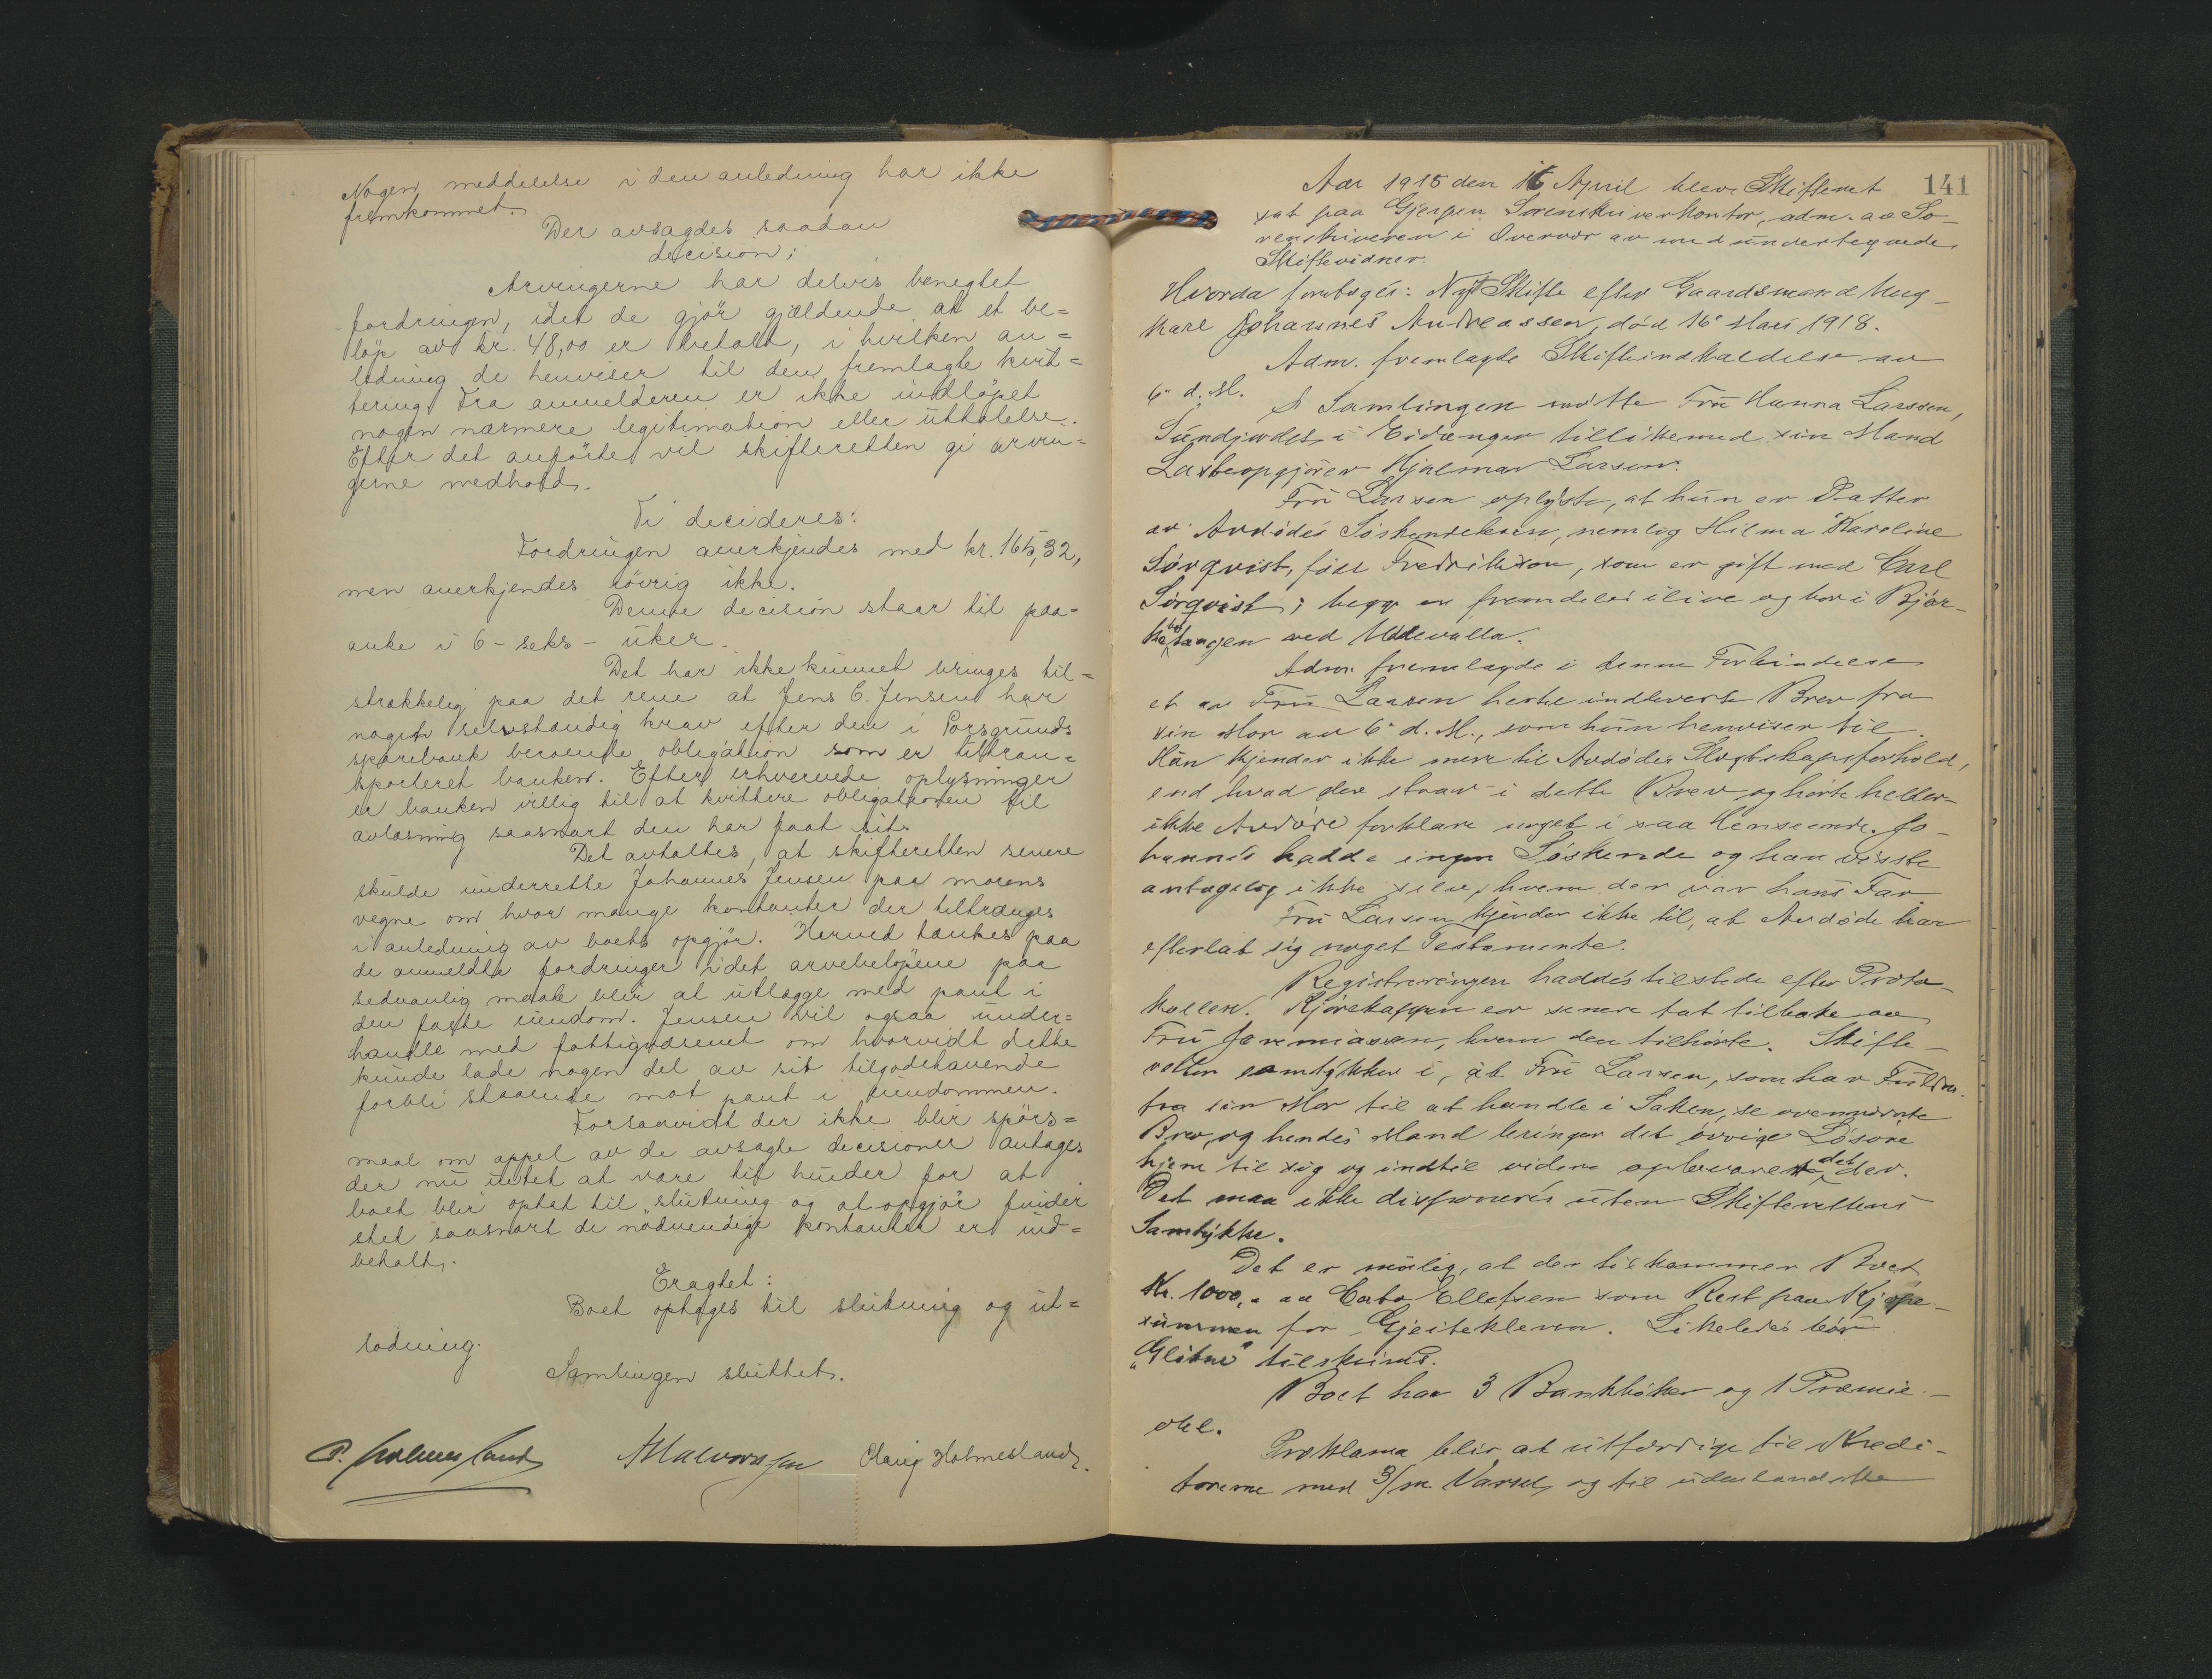 Nogen meddelelse i den anledning har ikke
fremkommet.
Der avsagdes saadan
decision:
Arvingerne har delvis benegtet
fordringen, idet de gjör gjældende at et be=
löp av kr. 48,00 er betalt, i hvilken an=
ledning de henviser til den fremlagte kvit=
tering. Fra anmelderen er ikke indlöpet
nogen nærmere legitimation eller uttalelse.
Efter det anförte vil skifteretten gi arvin=
gerne medhold.
Ti decideres:
Fordringen anerkjendes med kr. 165,32,
men anerkjendes iövrig ikke.
Denne decision staar til paa=
anke i 6 - seks - uker.
Det har ikke kunnet bringes til=
strækkelig paa det rene at Jens C. Jensen har
nogen selvstændig krav efter den i Porsgrunds
sparebank beroende obligation som er tiltran=
sporteret banken. Efter erhvervede oplysninger
er banken villig til at kvittere obligationen til
avlæsning saasnart den har faat sit.
Det avtaltes, at skifteretten senere
skulde underrette Johannes Jensen paa morens
vegne om hvor mange kontanter der tiltrænges
i anledning av boets opgjör. Herved tænkes paa
de anmeldte fordringer idet arvebelöpene paa
sedvanlig maate blir at utlægge med pant i
den faste eiendom. Jensen vil ogsaa under=
handle med fattigvæsenet om hvorvidt dette
kunde lade nogen del av sit tilgodehavende
forbli staaende mot pant i eiendommen.
Forsaavidt der ikke blir spörs=
maal om appel av de avsagte decisioner antages
der nu intet at være til hinder for at
boet blir optat til slutning og at opgjör finder
sted saasnart de nödvendige kontanter er ind=
betalt.
Eragtet:
Boet optages til slutning og ut=
lodning.
Samlingen sluttet.
P. Holmesland Halvorsen Claug Holmesland.
141
Aar 1918 den 16 April blev Skifteret
sat paa Gjerpen Sorenskriverkontor, adm. av So-
renskriveren i Overvær av med undertegnede
Skiftevidner.
Hvorda foretoges: Nyt Skifte efter Gaardsmand Ung-
karl Johannes Andreassen, död 16' Mars 1918.
Adm. fremlagte Skifteindkaldelse av
6' d. M.
I Samlingen mötte Fru Hanna Larssen,
Sundjordet i Eidanger tillikemed sin Mand
Lasteopgjörer Hjalmar Larsen.
Fru Larsen oplyste, at hun er Datter
av Avdödes Söskendebarn, nemlig Hilma Karoline
Sörqvist, född Fredrikson, som er gift med Carl
Sörqvist; begge er fremdeles ilive og bor i Björ-
ketangen ved Uddevalla.
Adm. fremlagde i denne Forbindelse
et av Fru Larsen herhe indleverte Brev fra
sin Mor av 6' d. M., som hun henviser til.
Hun kjender ikke mere til Avdödes Slegtskapsforhold,
end hvad der staar i dette Brev og hörte heller
ikke Avdöde forklare noget i saa Henseende. Jo-
hannes hadde ingen Söskende og han visste
antagelig ikke selv, hvem der var hans Far.
Fru Larsen kjender ikke til, at Avdöde har
efterlat sig noget Testamente.
Registreringen haddes tilstede efter Proto-
kollen. Kjörekappen er senere tat tilbake av
Fru Jeremiassen, hvem den tilhörte. Skifte-
retten samtykker i, at Fru Larsen, som har Fuldm.
fra sin Mor til at handle i Saken, se ovennævnte
Brev, og hendes Mand bringer det övrige Lösöre
hjem til sig og indtil videre opbevarer det der.
Det maa ikke disponeres uten Skifterettens
Samtykke.
Det er mulig, at der tilkommer Boet
Kr. 1000,- av Cato Ellefsen som Rest paa Kjöpe-
summen for Gjeitekleven. Likeledes bör
"Glitne" tilskrives.
Boet har 3 Bankböker og 1 Præmie-
obl.
Proklama blir at utfærdige til Kredi-
torerne med 3/m. Varsel, og til udenlandske